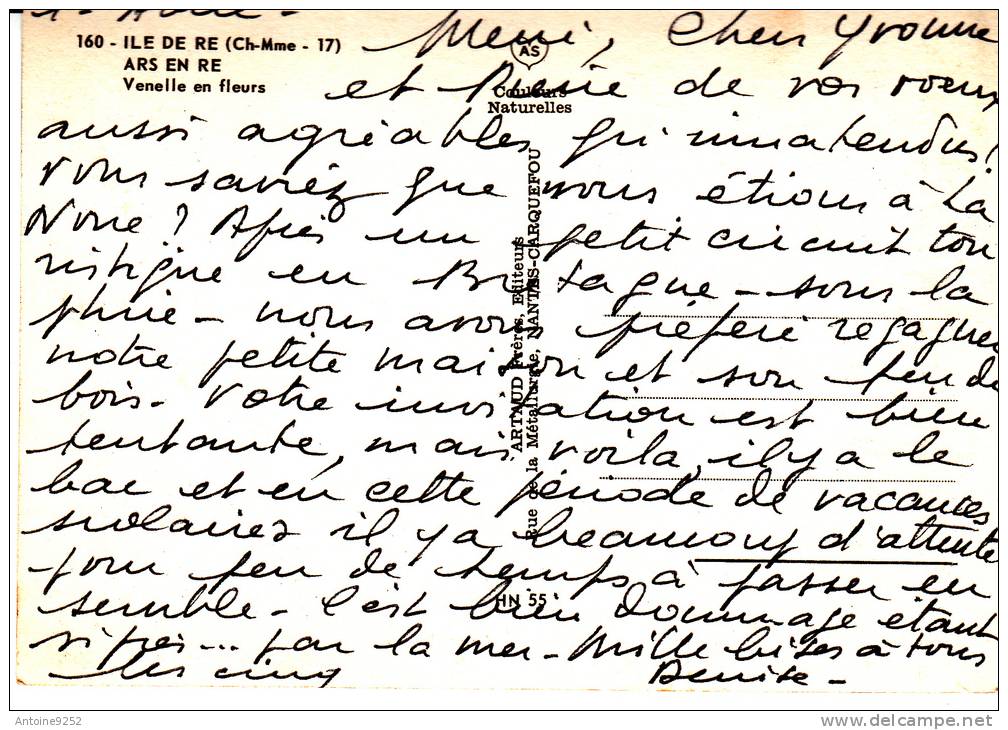 160 - ILE DE RE (Ch-Mme - 17)
ARS EN RE
Venelle en fleurs
AS
Couleurs
Naturelles
Merci, Chers Yvonne
et Pierre de vos voeux
aussi agréables qu'inattendus!
Vous saviez que nous étions à La
Noue? Après un petit circuit tou
ristique en Bretagne - sous la
pluie - nous avons préféré regagner
notre petite maison et son feu de
bois. Votre invitation est bien
tentante, mais voilà, il y a le
bac et en cette période de vacances
scolaires il y a beaucoup d'attente
pour peu de temps à passer en
semble - C'est bien dommage étant
si près... par la mer - Mille bises à tous
les cinq
Denise -
ARTAUD Frères, Editeurs
Rue de la Métallurgie, NANTES-CARQUEFOU
HN 55
Antoine9252
www.delcampe.net